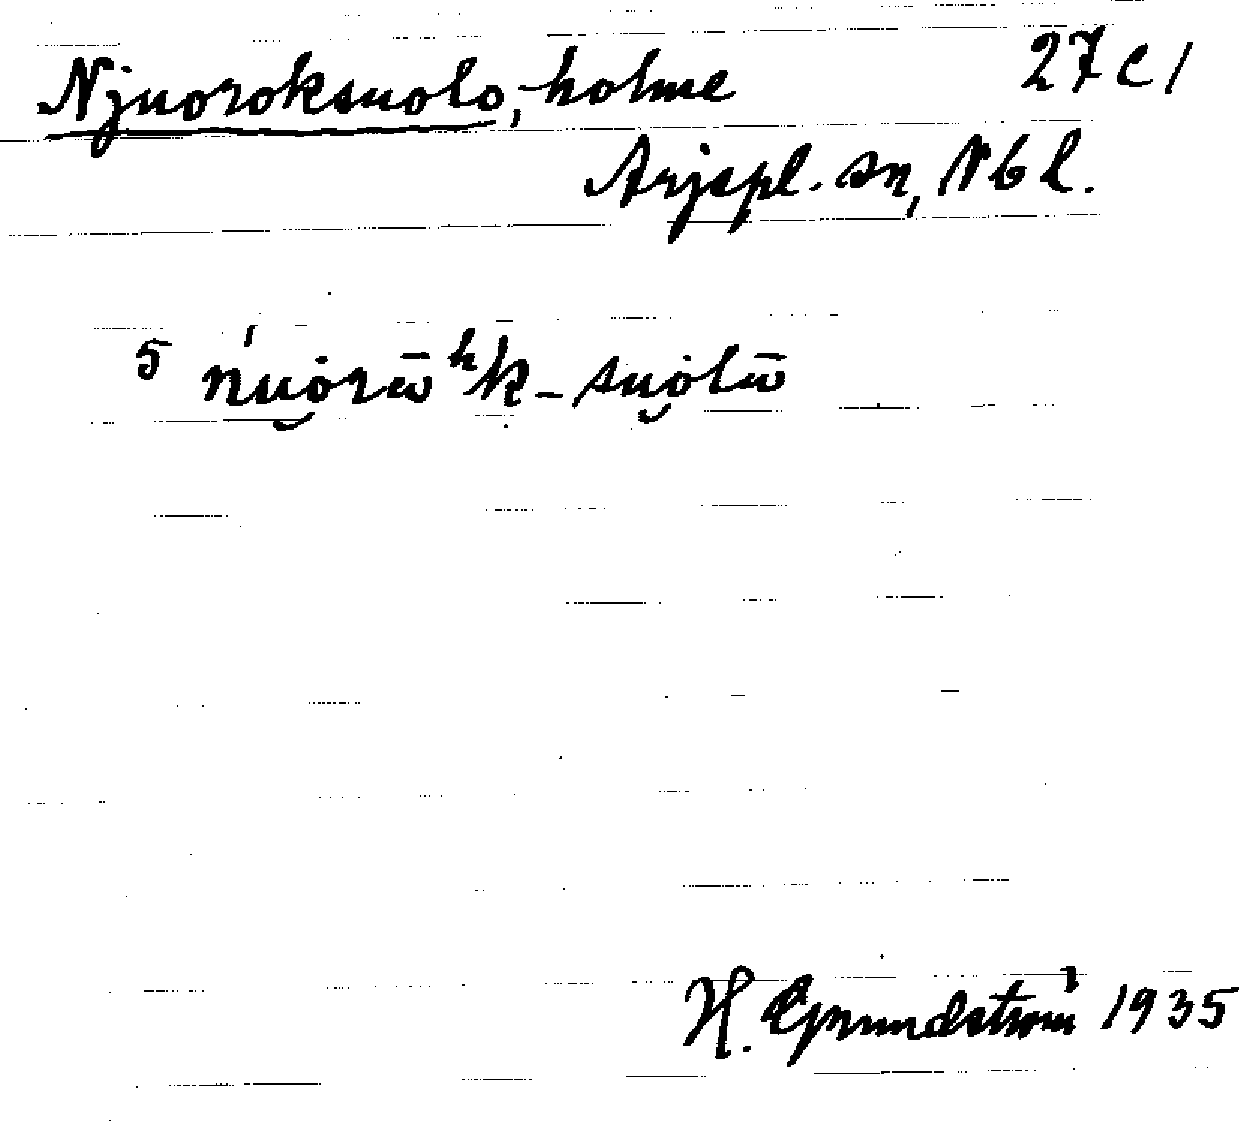 Njuoroksuolo, holme 27 c 1
Arjepl. sn, Nbl.
5 ńuȯrω̄ʰk-suȯlω̄
H. Grundström 1935